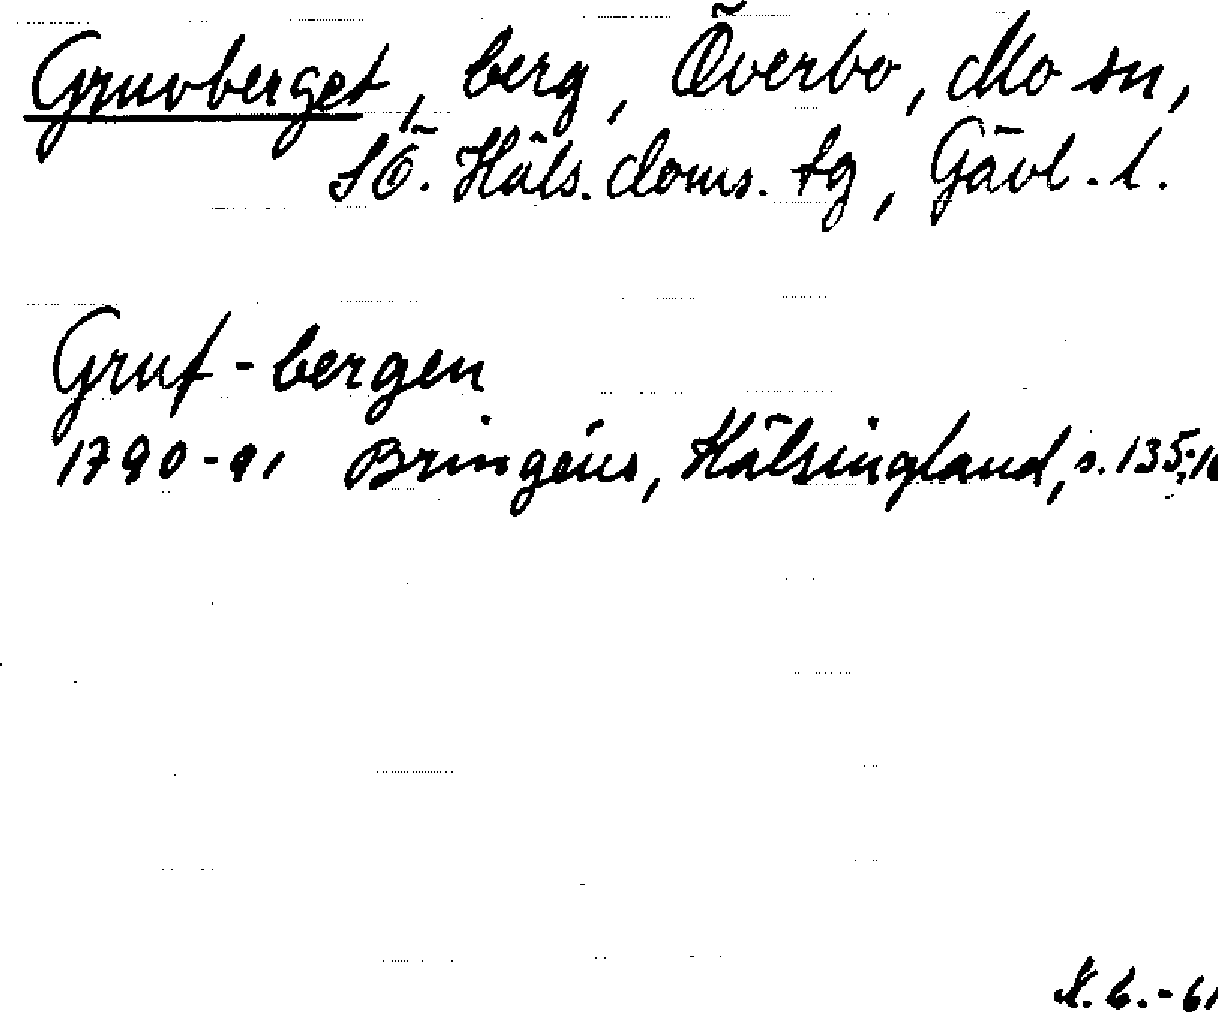 Gruvberget, berg, Överbo, Mo sn,
SÖ. Häls. doms. tg, Gävl. l.
Gruf-bergen
1790-91 Bringéus, Hälsingland, s. 135;